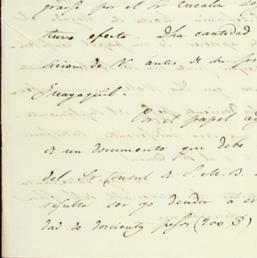 por el Sr
tuvo efecto. Dha cantidad
sicion de V. antes de su
Guayaquil.
Por el papel
es un documento que debe
del Sr Consul de S. M. B.
resulta ser yo deudor a
dad de doscientos pesos (200 $)